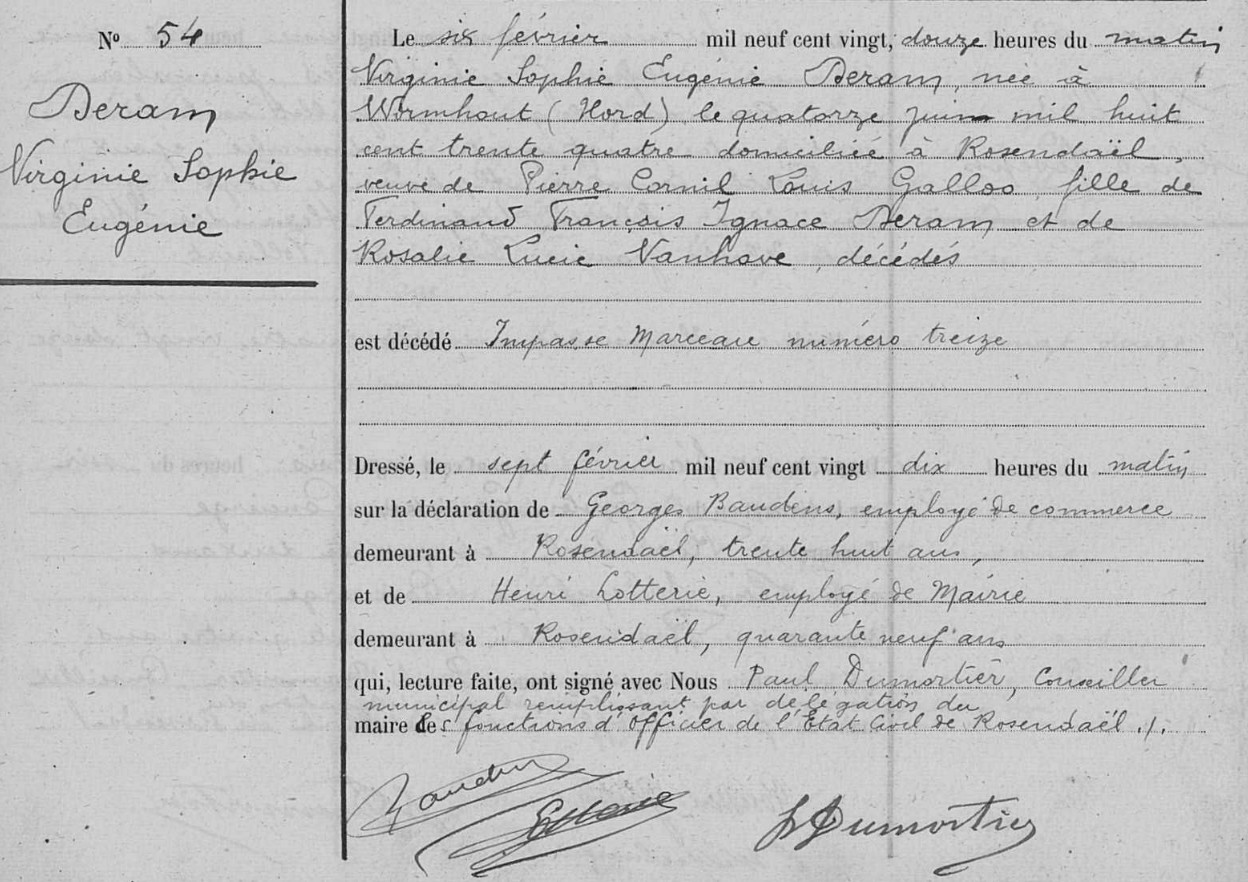 N° 54
Deram
Virginie Sophie
Eugénie
Le six février mil neuf cent vingt, douze heures du matin
Virginie Sophie Eugénie Deram, née à
Wormhout (Nord) le quatorze juin mil huit
cent trente quatre domiciliée à Rosendaël,
veuve de Pierre Cornil Louis Galloo fille de
Ferdinand François Ignace Deram et de
Rosalie Lucie Vanhove, décédés
est décédé Impasse Marceau numéro treize
Dressé, le sept février mil neuf cent vingt dix heures du matin
sur la déclaration de Georges Baudens, employé de commerce
demeurant à Rosendaël, trente huit ans,
et de Henri Lotterie, employé de Mairie
demeurant à Rosendaël, quarante neuf ans
qui, lecture faite, ont signé avec Nous Paul Dumortier, Conseiller
municipal remplissant par délégation du
maire les fonctions d'Officier de l'Etat Civil de Rosendaël ./.
Baudens
Lotterie
P Dumortier